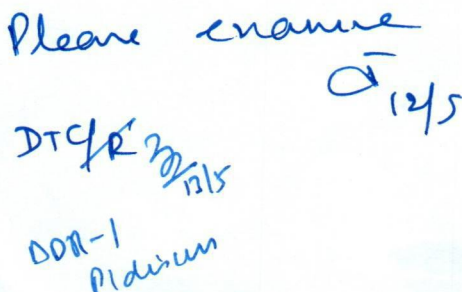 Please examine
12/5
DTC/R
13/5
DDR-1
Pl discuss